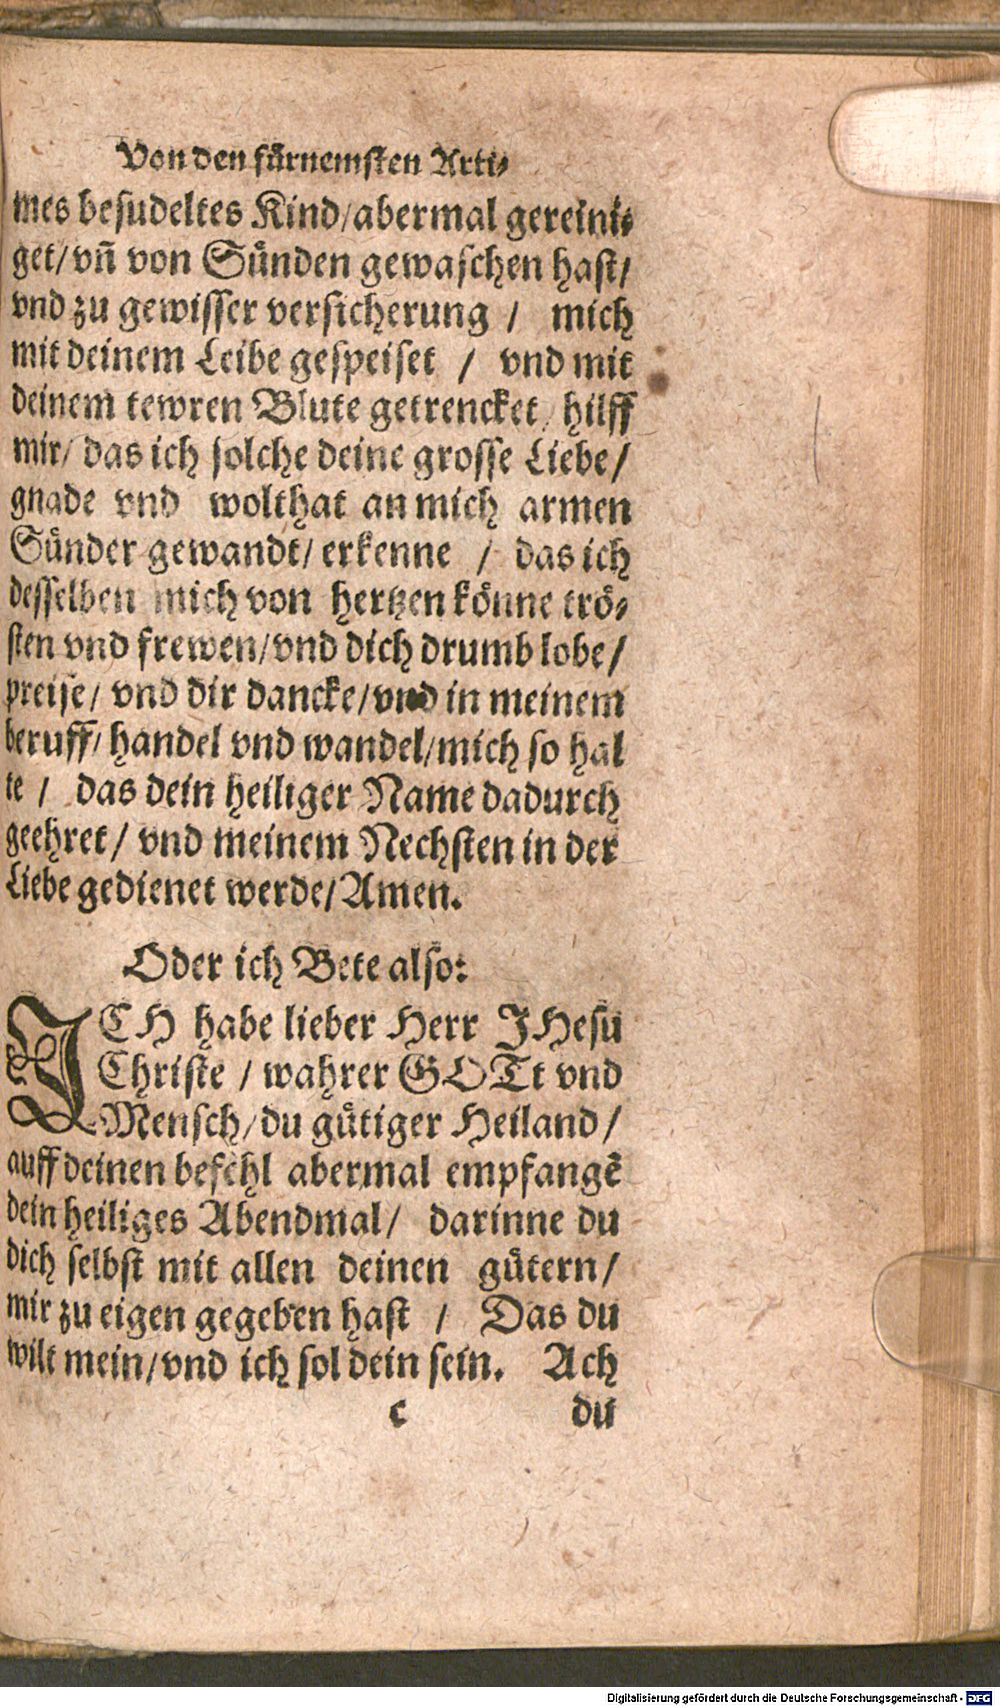 Von den fürnemsten Arti⸗
mes besudeltes Kind/abermal gereini⸗
get/vñ von Sünden gewaschen hast/
vnd zu gewisser versicherung / mich
mit deinem Leibe gespeiset / vnd mit
deinem tewren Blute getrencket/ hilff
mir/ das ich solche deine grosse Liebe/
gnade vnd wolthat an mich armen
Sünder gewandt/ erkenne / das ich
desselben mich von hertzen könne trö⸗
sten vnd frewen/vnd dich drumb lobe/
preise/ vnd dir dancke/vnd in meinem
beruff/ handel vnd wandel/mich so hal
te / das dein heiliger Name dadurch
geehret/ vnd meinem Nechsten in der
Liebe gedienet werde/Amen.
Oder ich Bete also:
ICH habe lieber Herr JHesu
Christe / wahrer GOTt vnd
Mensch/du gütiger Heiland/
auff deinen befehl abermal empfangē
dein heiliges Abendmal/ darinne du
dich selbst mit allen deinen gütern/
mir zu eigen gegeben hast / Das du
wilt mein/vnd ich sol dein sein. Ach
c du
Digitalisierung gefördert durch die Deutsche Forschungsgemeinschaft - DFG